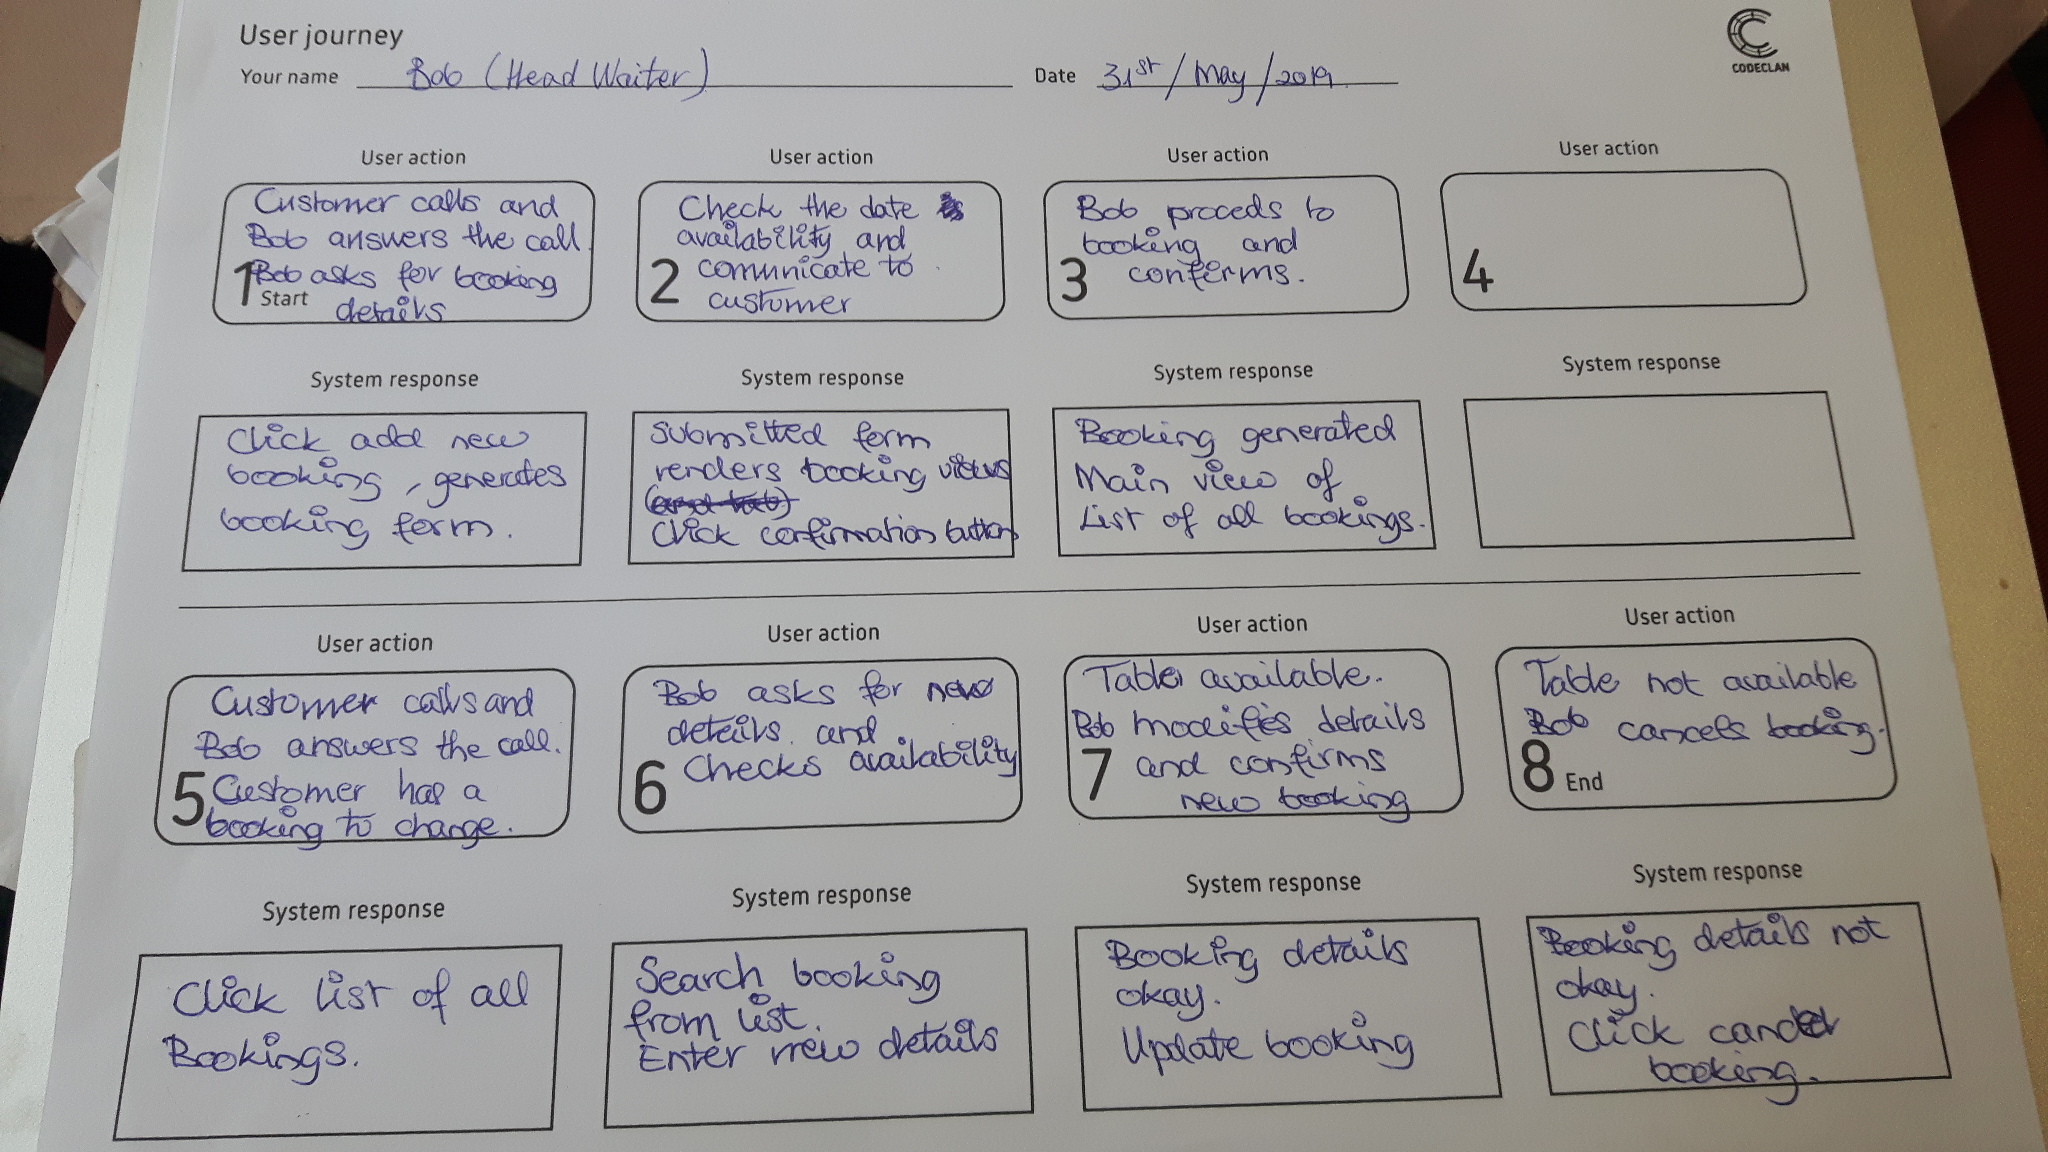 User journey
Your name Bob (Head Waiter) Date 31st/May/2019
CODECLAN
User action
Customer calls and
Bob answers the call.
Bob asks for booking
details
1 Start
User action
Check the date
availability and
comunicate to
customer
2
User action
Bob proceds to
booking and
confirms.
3
User action
4
System response
Click add new
booking, generates
booking form.
System response
Submitted form
renders booking views
Click confirmation button
System response
Booking generated
Main view of
List of all bookings.
System response
User action
Customer calls and
Bob answers the call.
Customer has a
booking to change.
5
User action
Bob asks for new
details and
Checks availability
6
User action
Table available.
Bob modifies details
and confirms
new booking
7
User action
Table not available
Bob cancels booking.
8 End
System response
Click list of all
Bookings.
System response
Search booking
from list.
Enter new details
System response
Booking details
okay.
Update booking
System response
Booking details not
okay.
Click cancel
booking.